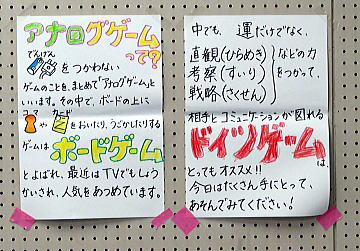 アナログゲーム
って?
でんげん
をつかわない
ゲームのことを、まとめて「アナログゲーム」と
いいます。その中で、ボードの上に
コマ カード
や をおいたり、うごかしたりする
ゲームはボードゲーム
とよばれ、最近はTVでもしょう
かいされ、人気をあつめています。
中でも、運だけでなく、
直観(ひらめき)
考察(すいり)
戦略(さくせん)
などの力
をつかって、
相手とコミュニケーションが図れる
ドイツゲームは、
とってもオススメ!!
今日はたくさん手にとって、
あそんでみてください!